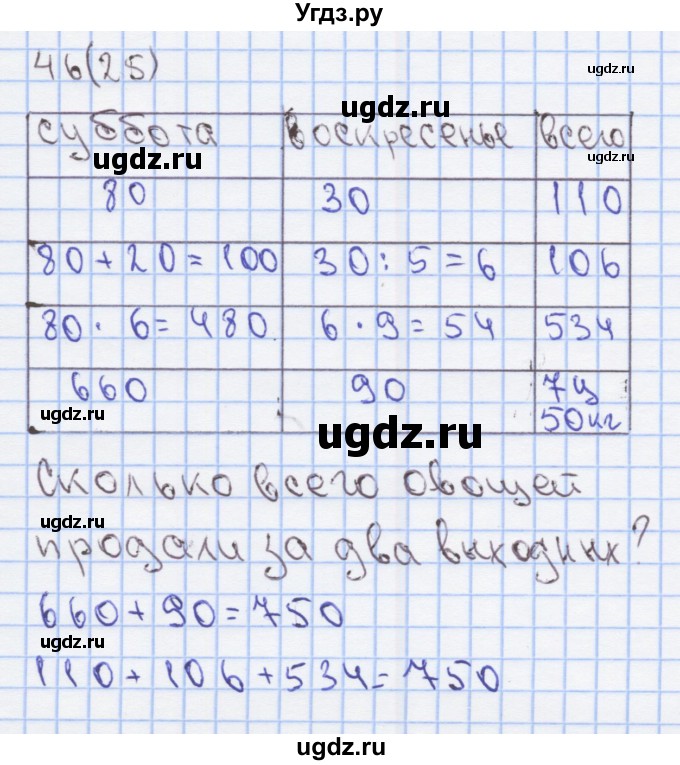 Угдз.ру
46(25)
ugdz.ru
ugdz.ru
суббота воскресенье всего
ugdz.ru
ugdz.ru
80 30 110
80 + 20 = 100 30 : 5 = 6 106
80 · 6 = 480 6 · 9 = 54 534
660 90 7ц 50кг
ugdz.ru
ugdz.ru
Сколько всего овощей
ugdz.ru
продали за два выходных?
660 + 90 = 750
ugdz.ru
110 + 106 + 534 = 750
ugdz.ru